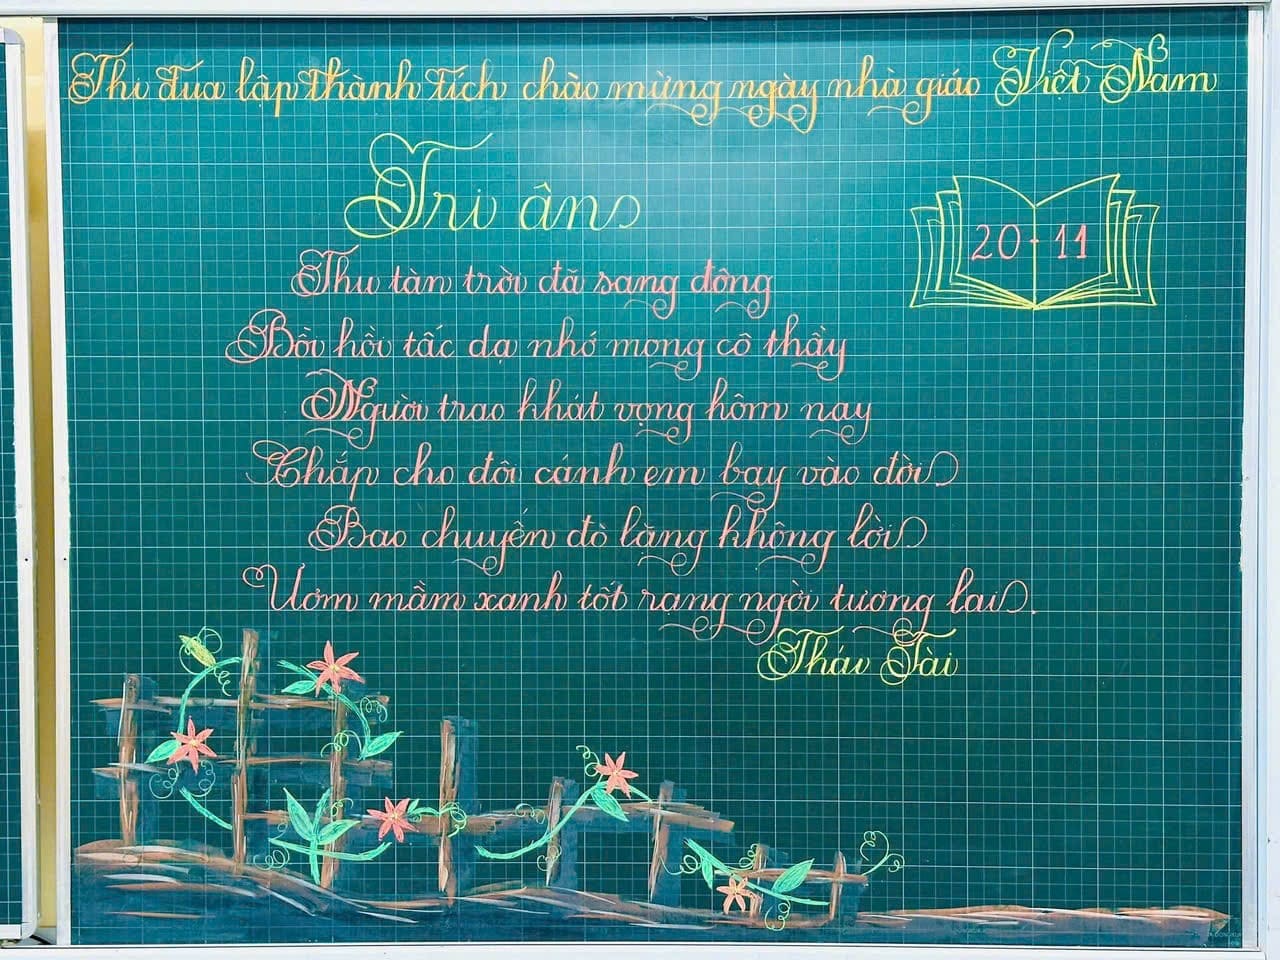 Thi đua lập thành tích chào mừng ngày nhà giáo Việt Nam
Tri ân
20 - 11
Thu tàn trời đã sang đông
Bồi hồi tấc dạ nhớ mong cô thầy
Người trao khát vọng hôm nay
Chắp cho đôi cánh em bay vào đời
Bao chuyến đò lặng không lời
Ươm mầm xanh tốt rạng ngời tương lai.
Thái Tài